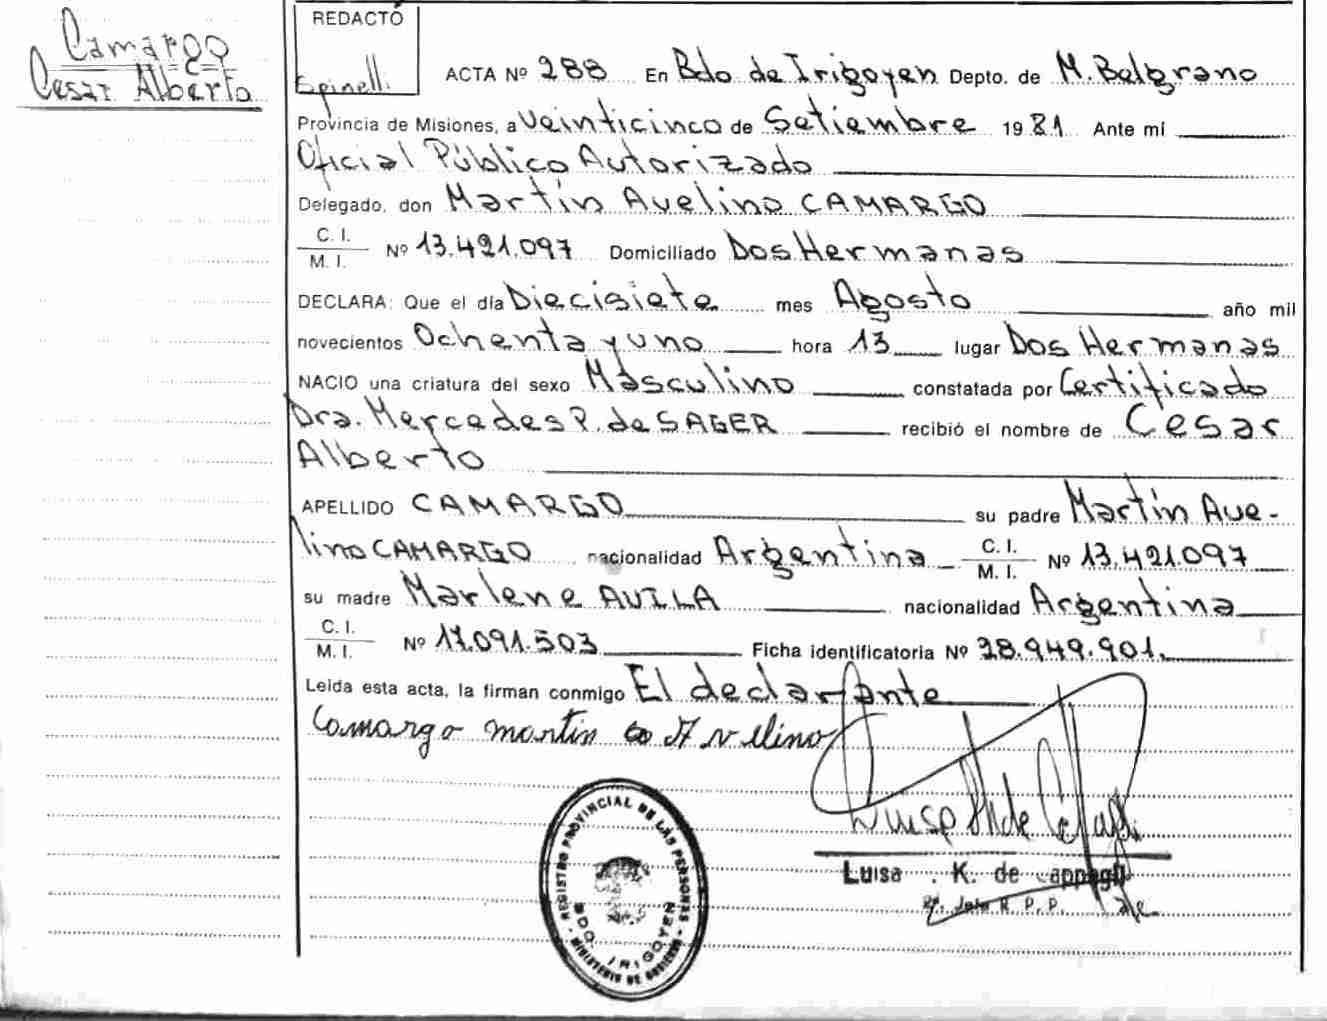 Camargo
Cesar Alberto
REDACTÓ
Spinelli
ACTA Nº 288 En Bdo de Irigoyen Depto. de M. Belgrano
Provincia de Misiones, a Veinticinco de Setiembre 1981 Ante mí
Oficial Público Autorizado
Delegado, don Martín Avelino CAMARGO
C. I.
M. I.
Nº 13.421.097 Domiciliado Dos Hermanas
DECLARA: Que el día Diecisiete mes Agosto año mil
novecientos Ochenta y uno hora 13 lugar Dos Hermanas
NACIO una criatura del sexo Masculino constatada por Certificado
Dra. Mercedes P. de SAGER recibió el nombre de Cesar
Alberto
APELLIDO CAMARGO su padre Martín Ave-
lino CAMARGO nacionalidad Argentina C. I.
M. I. Nº 13.421.097
su madre Marlene AVILA nacionalidad Argentina
C. I.
M. I.
Nº 17.091.503 Ficha identificatoria Nº 28.949.901.
Leída esta acta, la firman conmigo El declarante
Camargo martin Avelino
REGISTRO PROVINCIAL DE LAS PERSONAS
BDO. IRIGOYEN
Luisa K. de
R. P. P.